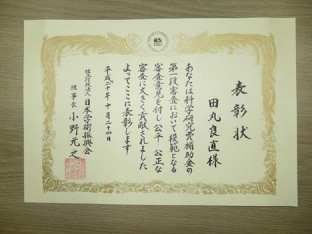 表彰状
田丸良直様
あなたは科学研究費補助金の
第一段審査において模範となる
審査意見を付し公平、公正な
審査に大きく貢献されました
よってここに表彰します
平成二十年十月二十四日
独立行政法人日本学術振興会
理事長小野元之